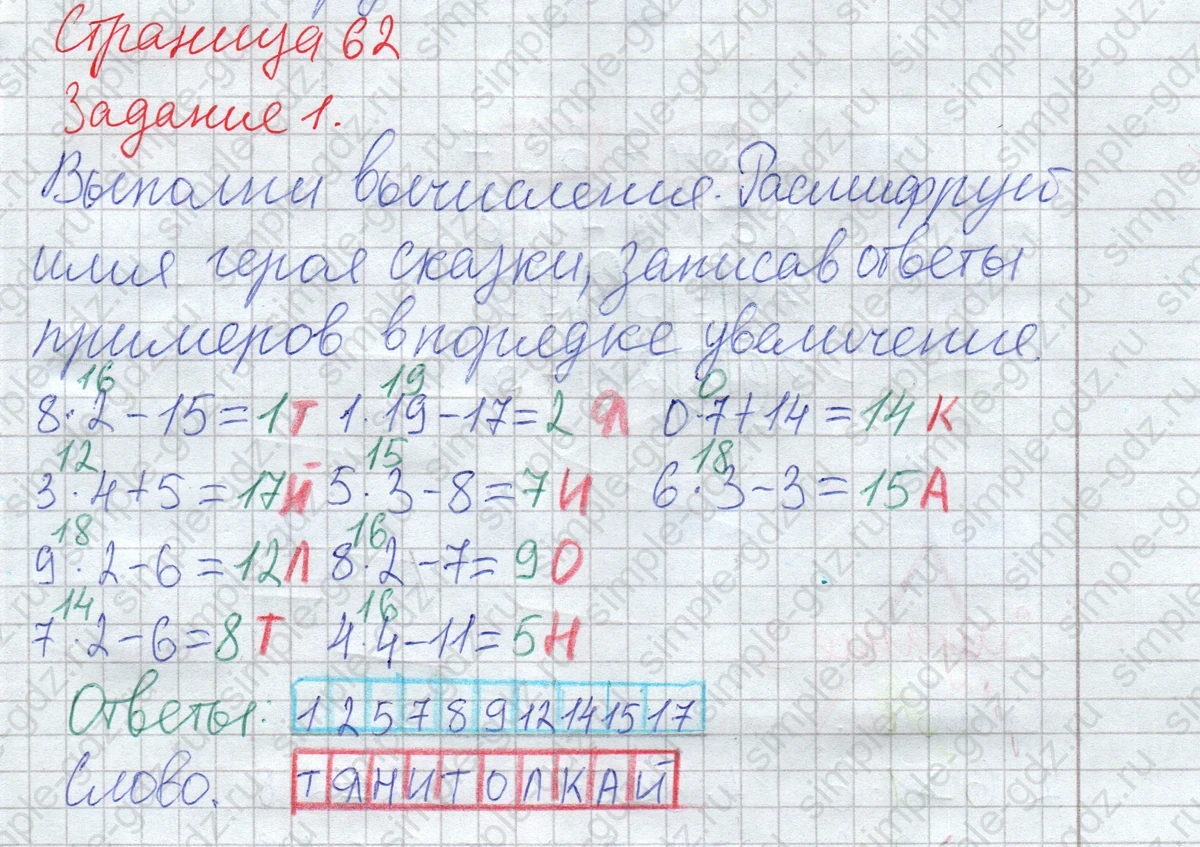 Страница 62
Задание 1.
Выполни вычисления. Расшифруй
имя героя сказки, записав ответы
примеров в порядке увеличения.
16 19 0
8·2-15=1Т 1·19-17=2 Я 0·7+14=14 К
12 15 18
3·4+5=17Й 5·3-8=7И 6·3-3=15А
18 16
9·2-6=12Л 8·2-7=9О
14 16
7·2-6=8Т 4·4-11=5Н
Ответы: 1 2 5 7 8 9 12 14 15 17
Слово. Т Я Н И Т О Л К А Й
simple-gdz.ru